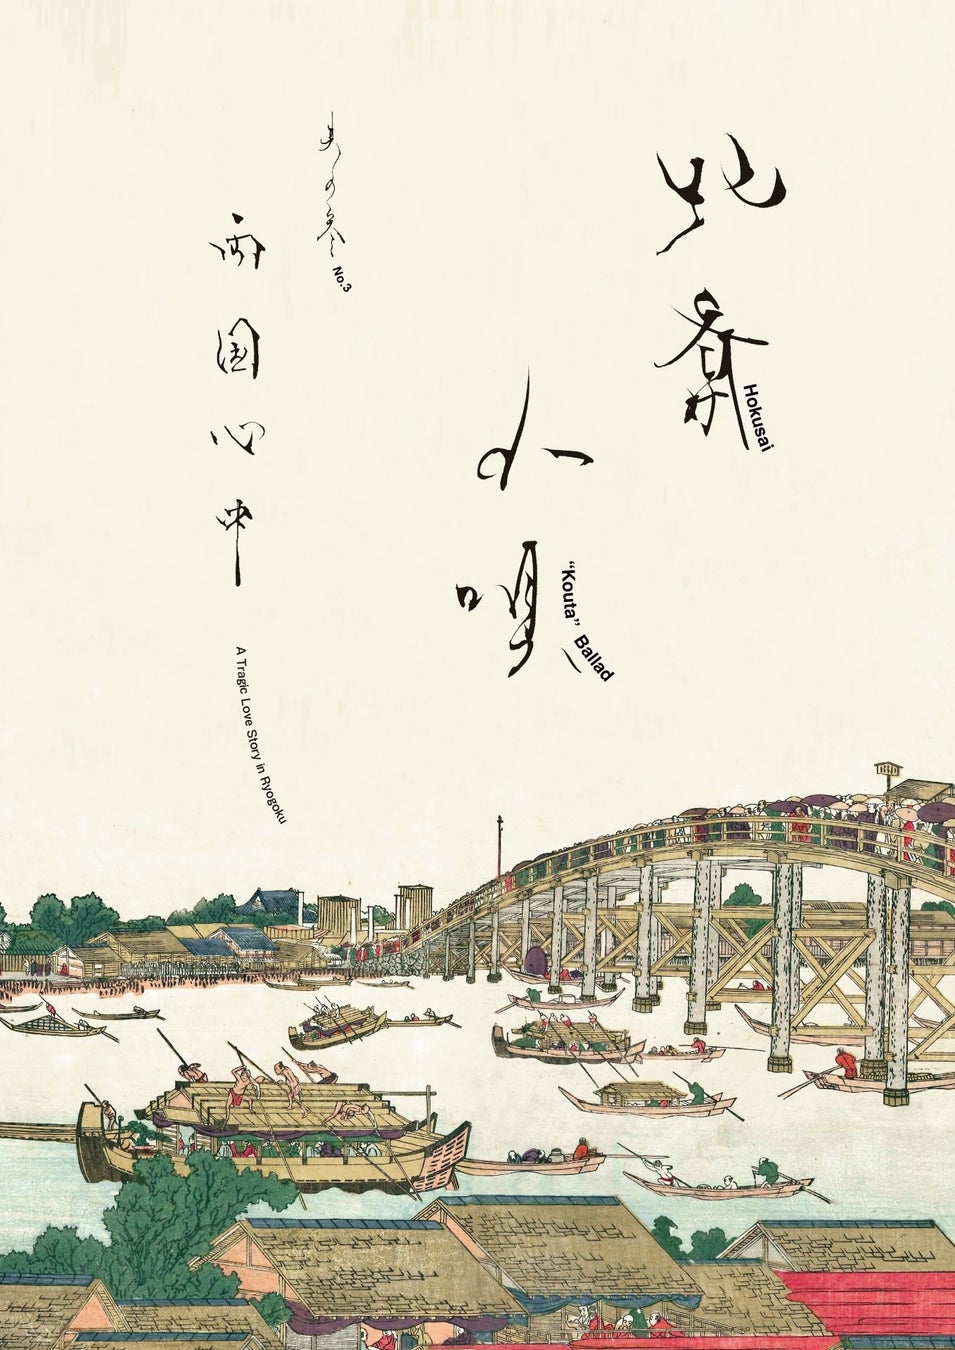 北斎
Hokusai
小唄
“Kouta” Ballad
其の参
No.3
両国心中
A Tragic Love Story in Ryogoku